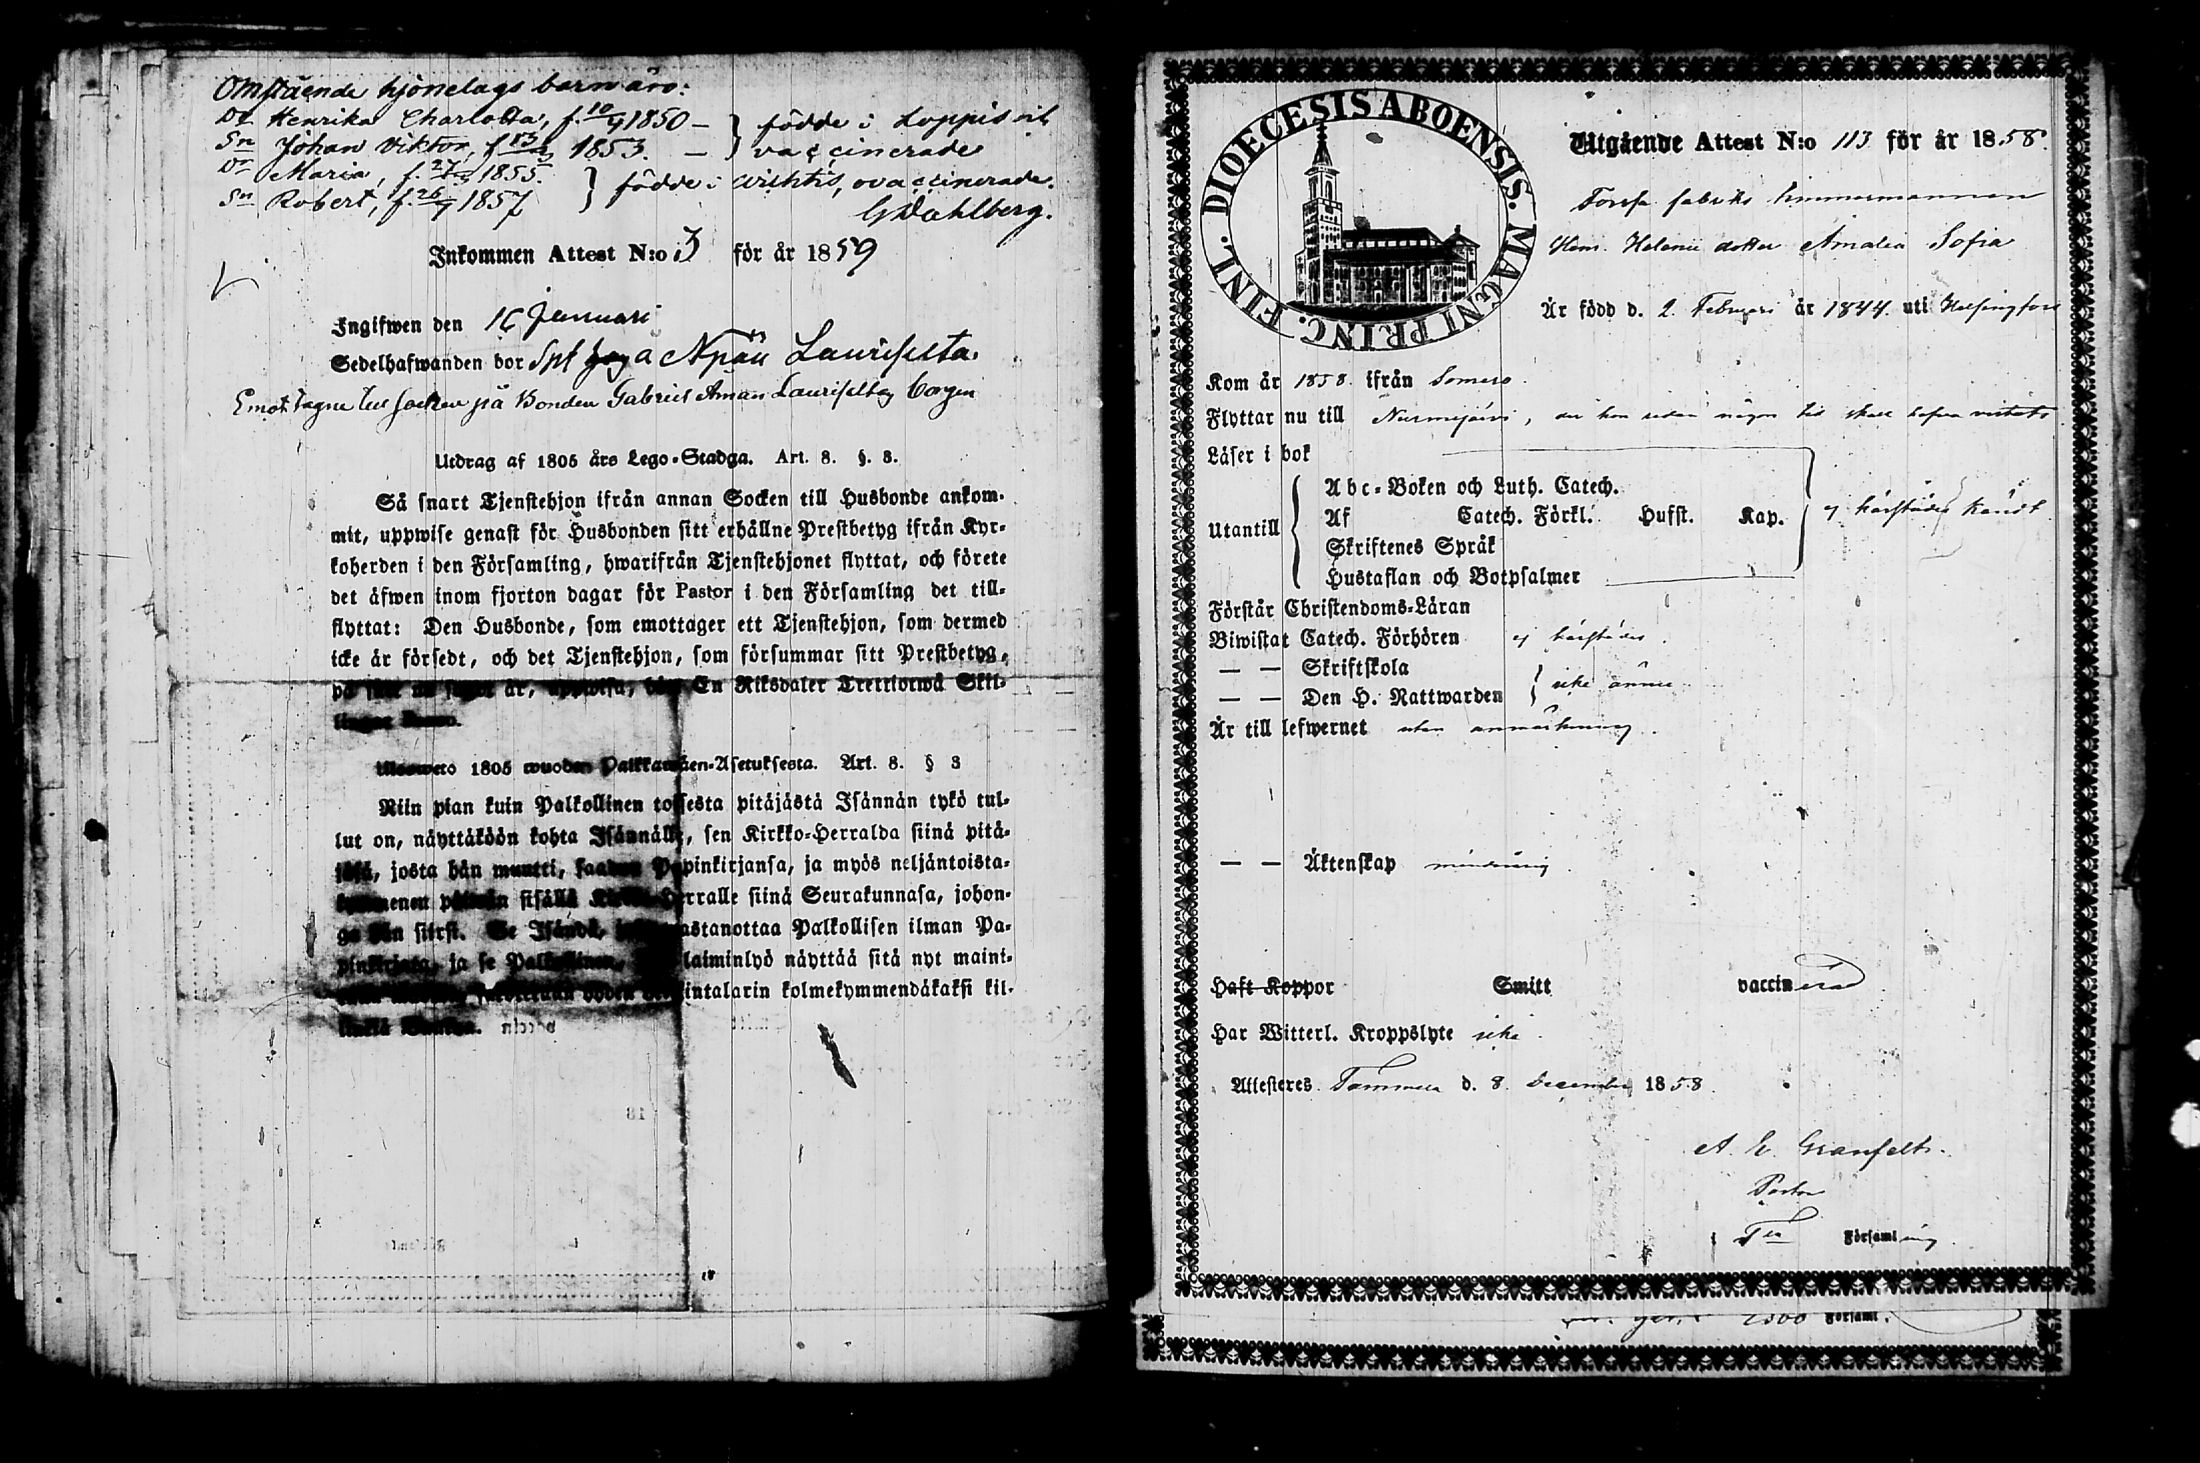 Omstående hjonelags barn äro:
Dr Henrika Charlotta, f. 10/9 1850 — } födde i Loppis och
Sn Johan Viktor, f 13/ 1853. — } vaccinerade
Dr Maria, f. 27/ 1855. } födde i Wichtis, ovaccinerade.
Sn Robert, f. 26/7 1857
G Dahlberg.
Inkommen Attest N:o 3 för år 1859
Ingifwen den 16 Januari
Sedelhafwanden bor Spt a Npää Laurispelta.
Emottagne till Socken på Bonden Gabriel Lauripelto borgen
Utdrag af 1805 års Lego-Stadga. Art. 8. §. 3.
Så snart Tjenstehjon ifrån annan Socken till Husbonde ankom-
mit, uppwise genast för Husbonden sitt erhållne Prestbetyg ifrån Kyr-
koherden i den Församling, hwarifrån Tjenstehjonet flyttat, och förete
det äfwen inom fjorton dagar för Pastor i den Församling det till-
flyttat: Den Husbonde, som emottager ett Tjenstehjon, som dermed
icke är försedt, och det Tjenstehjon, som försummar sitt Prestbetyg,
på sätt nu sagdt är, uppwisa, böte En Riksdaler Trettiotwå Skil-
lingar Banco.
Ulosweto 1805 wuoden Palkkawäen-Asetuksesta. Art. 8. § 3
Niin pian kuin Palkollinen toisesta pitäjästä Isännän tykö tul-
lut on, näyttäköön kohta Isännälle, sen Kirkko-Herralda siinä pitä-
jäsä, josta hän muutti, saadun Papinkirjansa, ja myös neljäntoista-
kymmenen päiwän sisällä Kirkko-Herralle siinä Seurakunnasa, johon-
ga hän siirsi. Se Isändä, joka wastanottaa Palkollisen ilman Pa-
pinkirjata, ja se Palkollinen, laiminlyö näyttää sitä nyt maini-
tulla muodolla, wetäkään yhden Riksintalarin kolmekymmendäkaksi kil-
linkiä Bankoa.
DIOECESIS ABOENSIS. MAGNI PRINC. FINL.
Utgående Attest N:o 113 för år 1858.
Forssa fabriks timmermannen
Hem. Helenii dotter Amalia Sofia
Är född d. 2 Februari år 1844. uti Helsingfors
Kom år 1858. ifrån Somero.
Flyttar nu till Nurmijärvi, der hon redan någon tid skall hafva vistats
Läser i bok
Utantill { Abc-Boken och Luth. Catech.
Af Catech. Förkl. Husst. Kap. } ej härstädes kändt
Skriftenes Språk
Hustaflan och Botpsalmer
Förstår Christendoms-Läran
Biwistat Catech. Förhören ej härstädes.
— — Skriftskola } icke ännu
— — Den H. Nattwarden
Är till lefwernet utan anmärkning.
— — Äktenskap minderårig
Haft Koppor Smitt vaccinerad
Har Witterl. Kroppslyte icke.
Attesteres Tammela d. 8. December 1858.
A. W. Granfelt.
Pastor
i Församling
Församl.